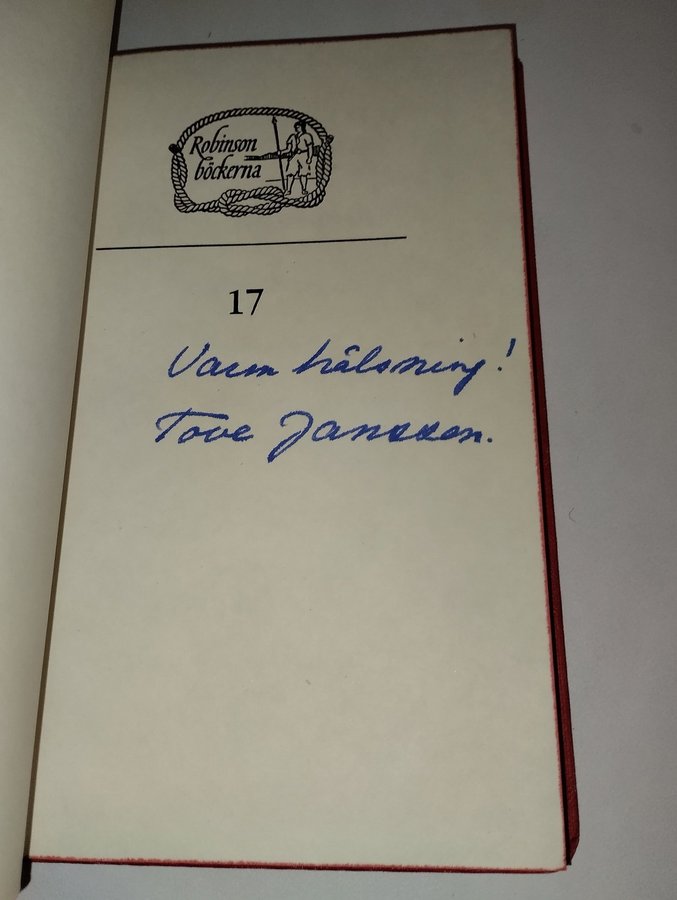 Robinson
böckerna
17
Varm hälsning!
Tove Jansson.